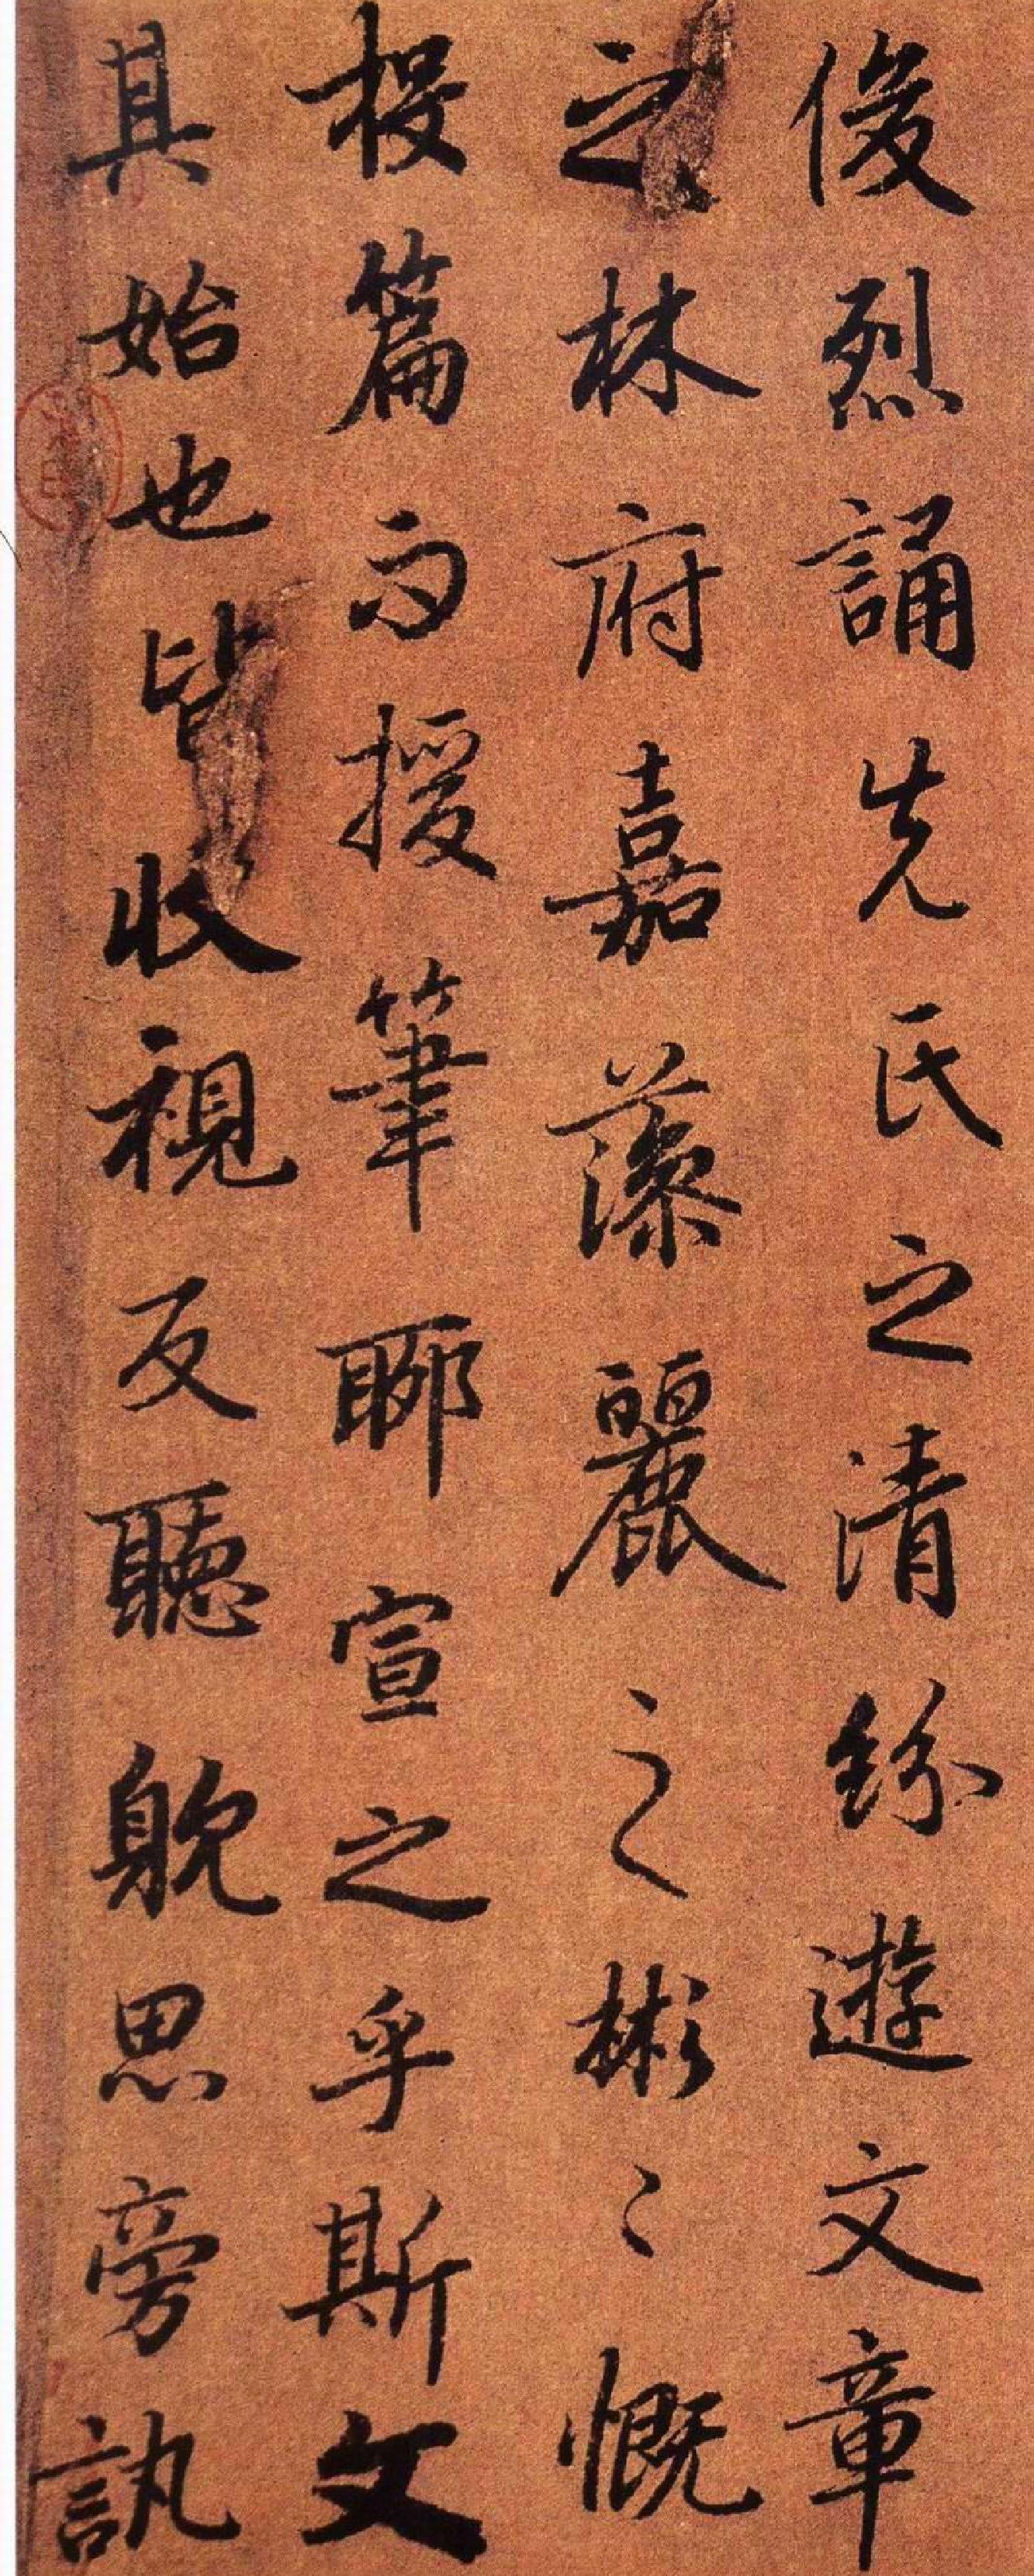 俊烈誦先氏之清紛遊文章
之林府嘉藻麗之彬〻慨
投篇而授筆聊宣之乎斯文
其始也皆收視反聽躭思旁訊